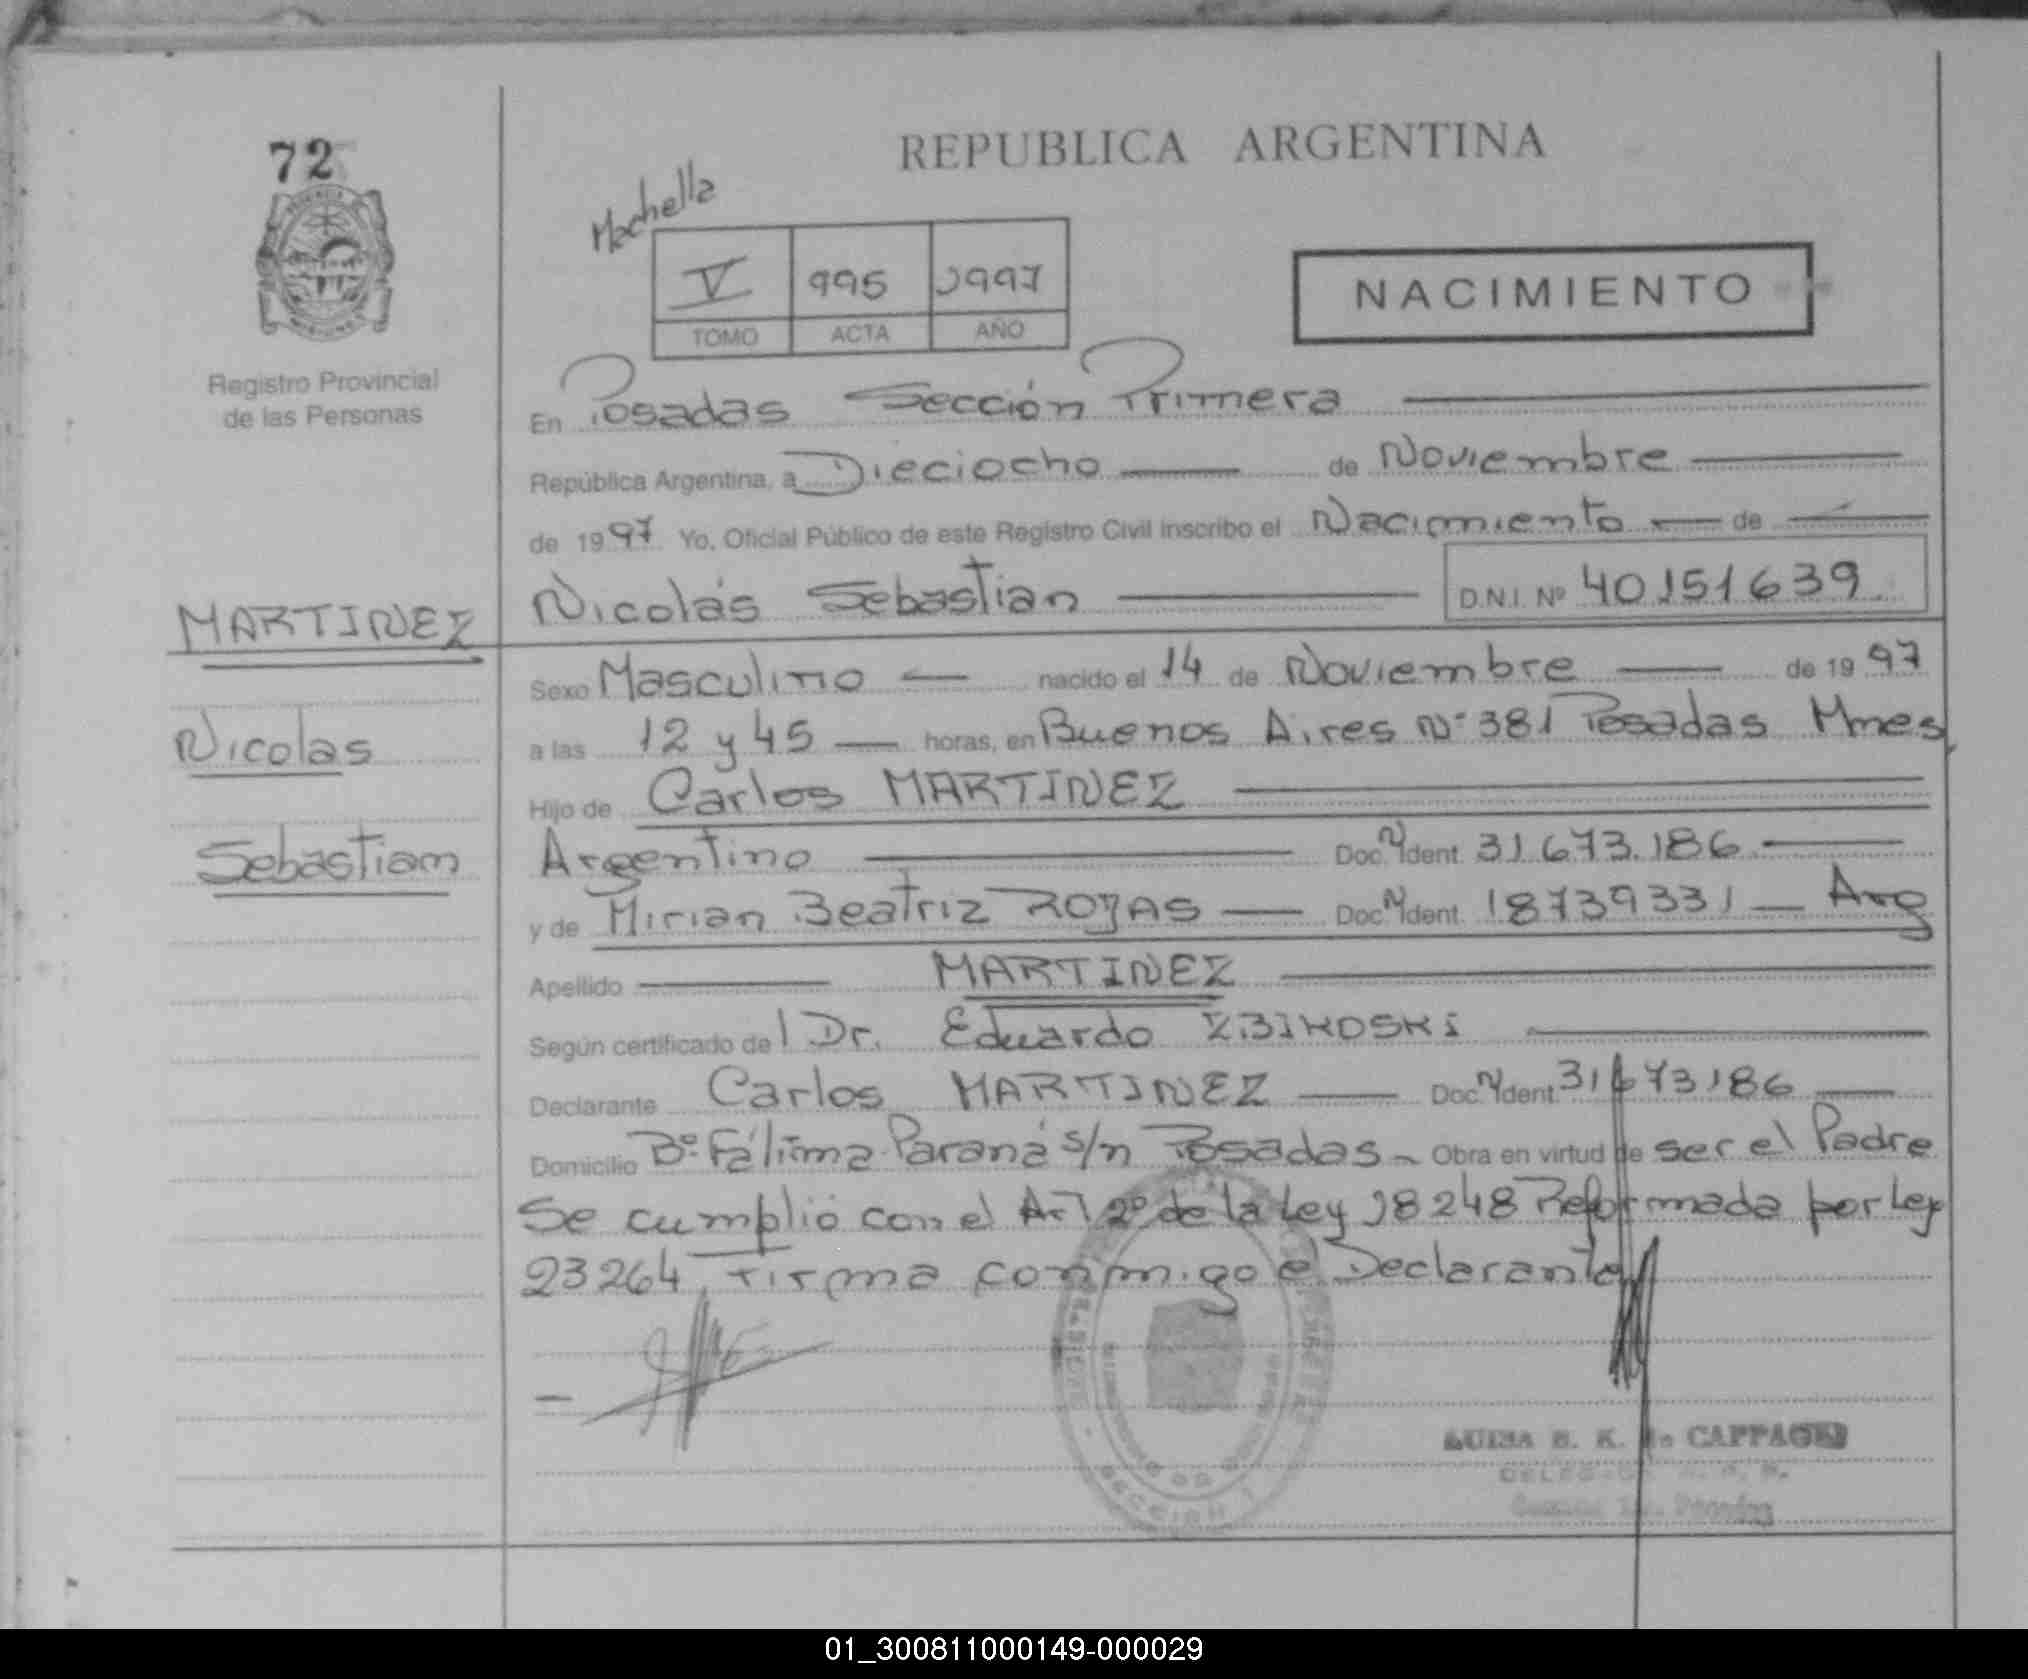 72
REPUBLICA ARGENTINA
Machella
V 995 1997
TOMO ACTA AÑO
NACIMIENTO
Registro Provincial
de las Personas
En Posadas Sección Primera
República Argentina, a Dieciocho de Noviembre
de 1997 Yo, Oficial Público de este Registro Civil inscribo el Nacimiento de
MARTINEZ
Nicolás Sebastian D.N.I. Nº 40151639
Nicolas
Sebastiam
Sexo Masculino nacido el 14 de Noviembre de 1997
a las 12 y 45 horas, en Buenos Aires Nº 381 Posadas Mnes
Hijo de Carlos MARTINEZ
Argentino Doc. Ident. 31.673.186
y de Mirian Beatriz ROJAS Doc. Ident. 18739331 Arg
Apellido MARTINEZ
Según certificado del Dr. Eduardo ZBIKOSKI
Declarante Carlos MARTINEZ Doc. Ident. 31673186
Domicilio Bº Fátima Paraná s/n Posadas Obra en virtud de ser el Padre
Se cumplió con el Art 2º de la Ley 18248 Reformada por Ley
23264, Firma conmigo el Declarante
SECCION 1
LUISA B. K. de
01_300811000149-000029